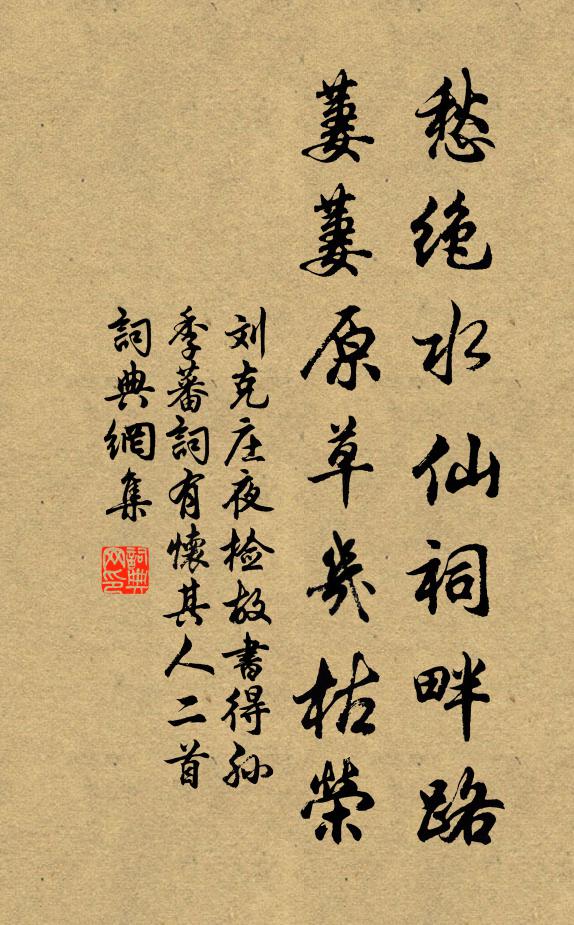 愁绝水仙祠畔路
萋萋原草几枯榮
刘克庄夜检故書得孙
季蕃詞有懷其人二首
詞典網集
詞典
网印